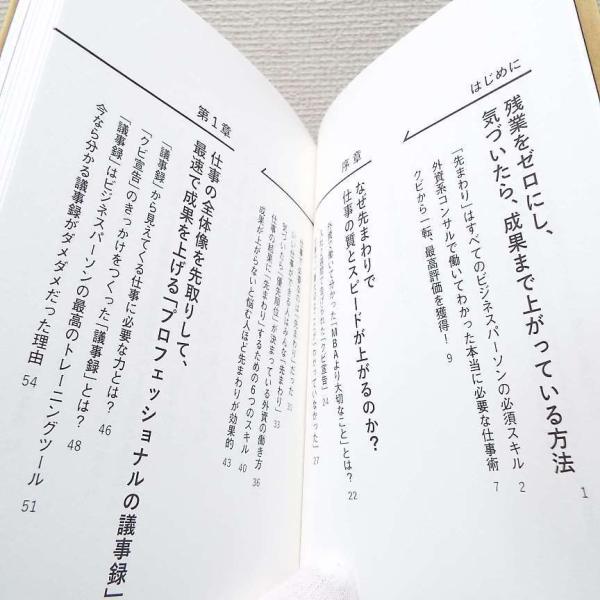 はじめに
残業をゼロにし、
気づいたら、成果まで上がっている方法 1
「先まわり」はすべてのビジネスパーソンの必須スキル 2
外資系コンサルで働いてわかった本当に必要な仕事術 7
クビから一転、最高評価を獲得！ 9
序章
なぜ先まわりで
仕事の質とスピードが上がるのか？ 22
外資で働いて分かった「MBAより大切なこと」とは？ 24
「クビ宣告」 27
仕事で必要なのは「先まわり」だった 30
仕事ができる人はみんな「先まわり」 33
気づいたら「優先順位」が決まっている外資の働き方 36
仕事の結果に「先まわり」するための6つのスキル 40
成果が上がらないと悩む人ほど先まわりが効果的 43
第1章
仕事の全体像を先取りして、
最速で成果を上げる「プロフェッショナルの議事録」
「議事録」から見えてくる仕事に必要な力とは？ 46
「クビ宣告」のきっかけをつくった「議事録」とは？ 48
「議事録」はビジネスパーソンの最高のトレーニングツール 51
今なら分かる議事録がダメダメだった理由 54